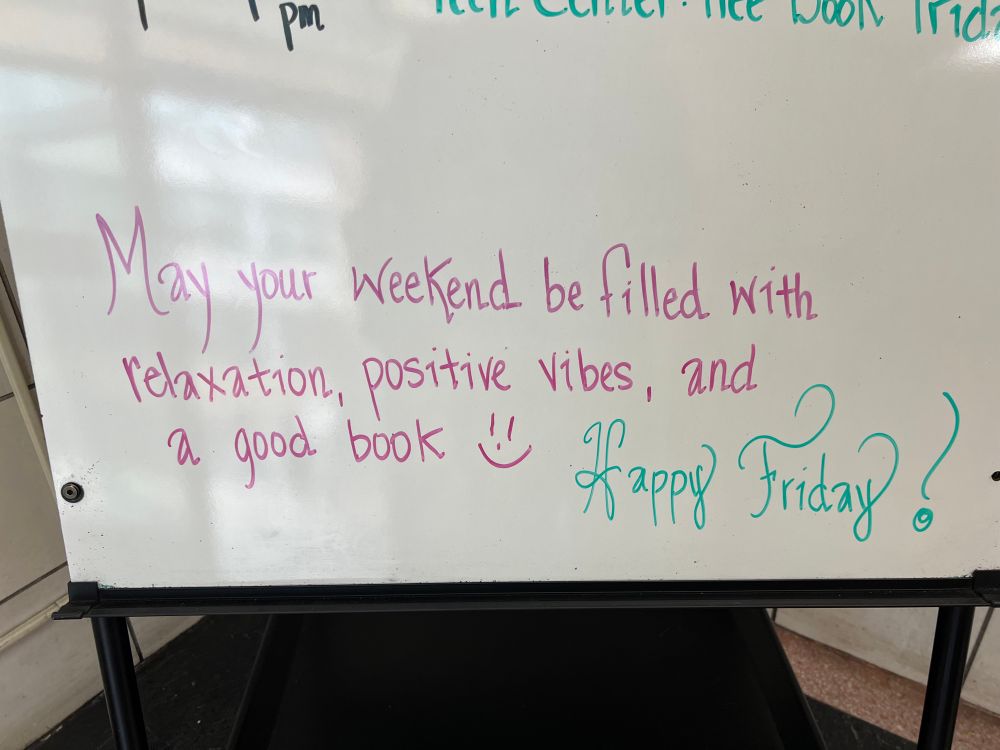 pm Teen Center: Free Book Frida
May your weekend be filled with
relaxation, positive vibes, and
a good book
Happy Friday!